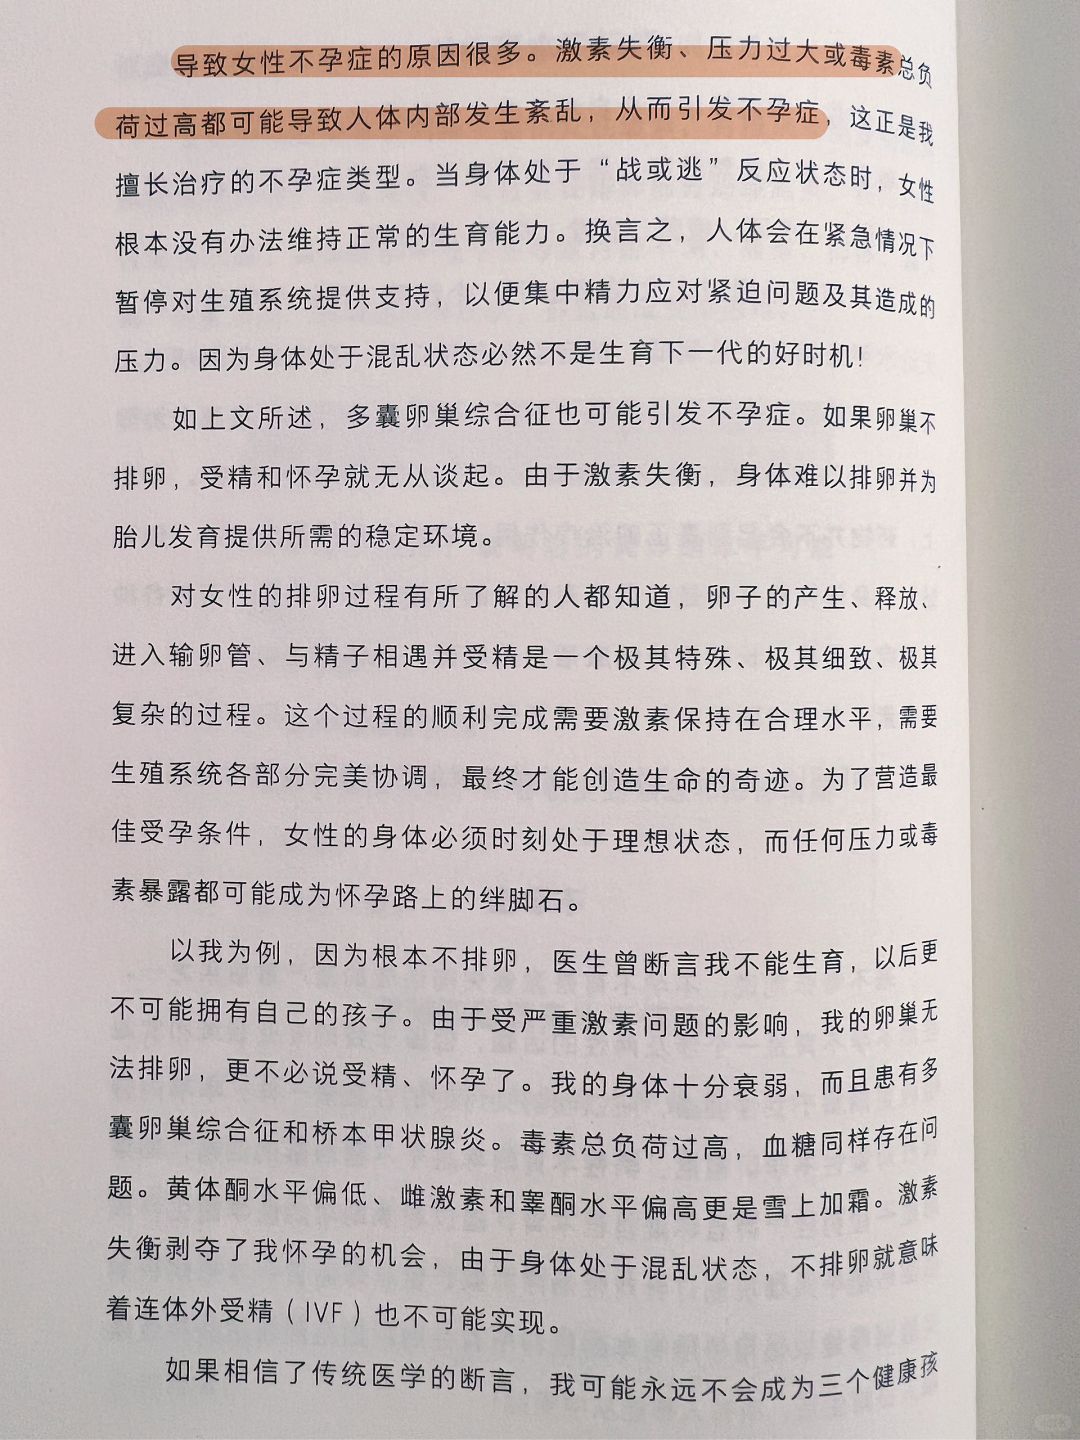 导致女性不孕症的原因很多。激素失衡、压力过大或毒素总负
荷过高都可能导致人体内部发生紊乱，从而引发不孕症，这正是我
擅长治疗的不孕症类型。当身体处于“战或逃”反应状态时，女性
根本没有办法维持正常的生育能力。换言之，人体会在紧急情况下
暂停对生殖系统提供支持，以便集中精力应对紧迫问题及其造成的
压力。因为身体处于混乱状态必然不是生育下一代的好时机！
如上文所述，多囊卵巢综合征也可能引发不孕症。如果卵巢不
排卵，受精和怀孕就无从谈起。由于激素失衡，身体难以排卵并为
胎儿发育提供所需的稳定环境。
对女性的排卵过程有所了解的人都知道，卵子的产生、释放、
进入输卵管、与精子相遇并受精是一个极其特殊、极其细致、极其
复杂的过程。这个过程的顺利完成需要激素保持在合理水平，需要
生殖系统各部分完美协调，最终才能创造生命的奇迹。为了营造最
佳受孕条件，女性的身体必须时刻处于理想状态，而任何压力或毒
素暴露都可能成为怀孕路上的绊脚石。
以我为例，因为根本不排卵，医生曾断言我不能生育，以后更
不可能拥有自己的孩子。由于受严重激素问题的影响，我的卵巢无
法排卵，更不必说受精、怀孕了。我的身体十分衰弱，而且患有多
囊卵巢综合征和桥本甲状腺炎。毒素总负荷过高，血糖同样存在问
题。黄体酮水平偏低、雌激素和睾酮水平偏高更是雪上加霜。激素
失衡剥夺了我怀孕的机会，由于身体处于混乱状态，不排卵就意味
着连体外受精（IVF）也不可能实现。
如果相信了传统医学的断言，我可能永远不会成为三个健康孩